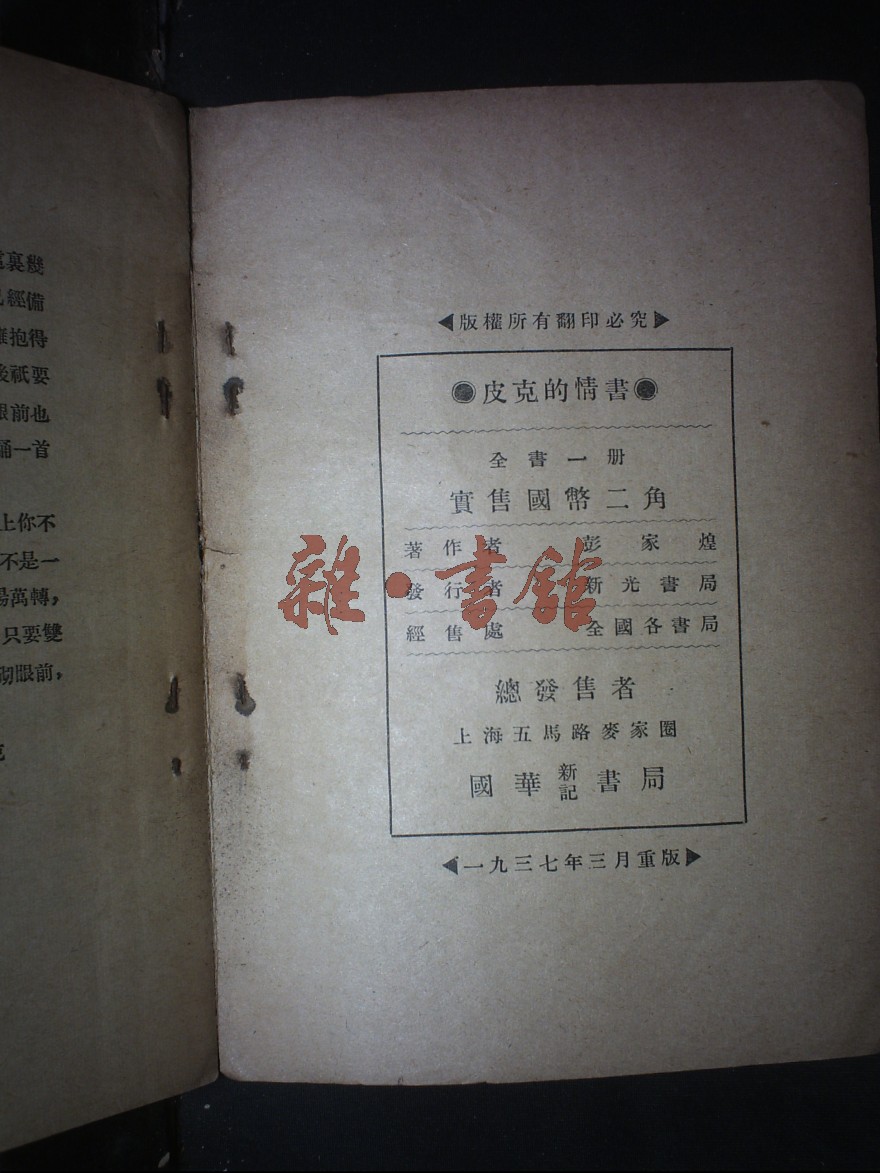 處裏幾
已經備
擁抱得
後祇要
眼前也
誦一首
上你不
不是一
腸萬轉，
只要雙
切眼前，
克
◀版權所有翻印必究▶
●皮克的情書●
全書一册
實售國幣二角
著作者 彭家煌
發行者 新光書局
經售處 全國各書局
總發售者
上海五馬路麥家圈
國華新記書局
◀一九三七年三月重版▶
雜·書館